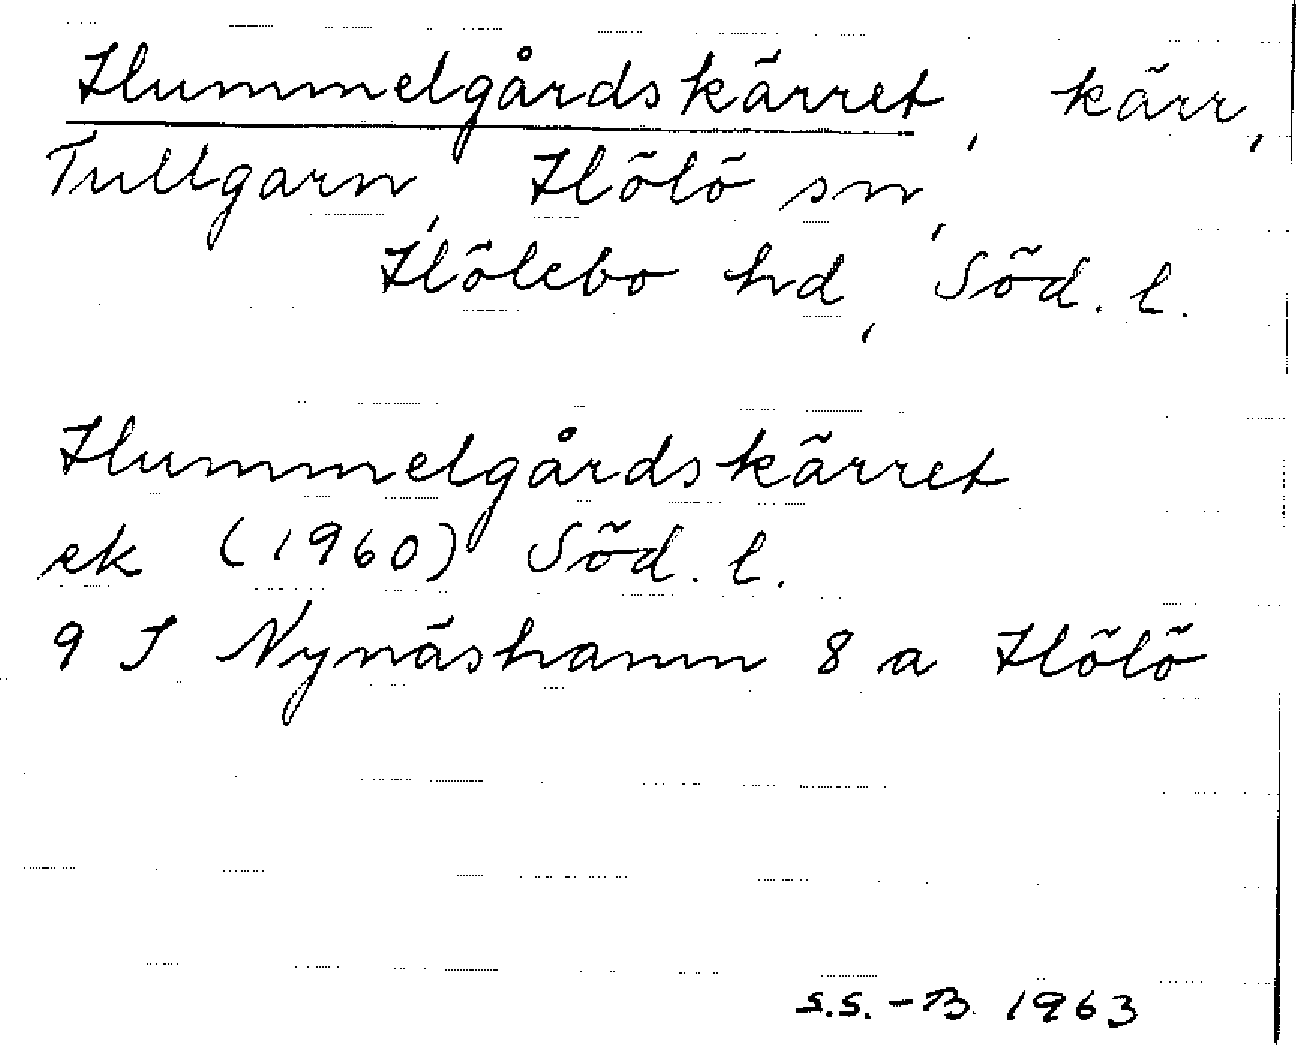 Hummelgårdskärret, kärr,
Tullgarn, Hölö sn,
Hölebo hd, Söd. l.
Hummelgårdskärret
ek (1960) Söd. l.
9 I Nynäshamn 8 a Hölö
S.S.-B 1963